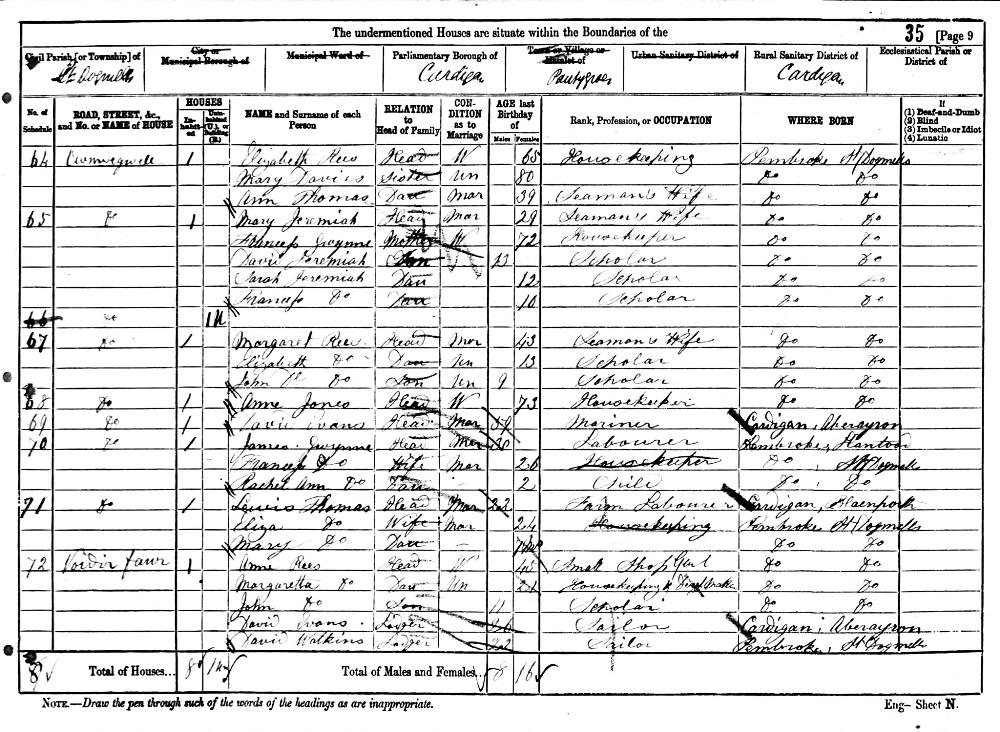 The undermentioned Houses are situate within the Boundaries of the
35 [Page 9
Civil Parish [or Township] of St Dogmells
City or Municipal Borough of
Municipal Ward of
Parliamentary Borough of Cardigan
Town or Village or Hamlet of
Urban Sanitary District of
Rural Sanitary District of Cardigan
Ecclesiastical Parish or District of
No. of Schedule
ROAD, STREET, &c., and No. or NAME of HOUSE
HOUSES
In-habit-ed
Unin-habited (U.), or Building (B.)
NAME and Surname of each Person
RELATION to Head of Family
CON-DITION as to Marriage
AGE last Birthday of
Males
Females
Rank, Profession, or OCCUPATION
WHERE BORN
If
(1) Deaf-and-Dumb
(2) Blind
(3) Imbecile or Idiot
(4) Lunatic
64 1 Elizabeth Rees Head W 65 Housekeeping Pembroke St Dogmells
Mary Davies Sister Un 80 Do Do
Ann Thomas Dau Mar 39 Seaman's Wife Do Do
65 Do 1 Mary Jeremiah Head Mar 29 Seaman's Wife Do Do
Frances Gwynne Mother W 72 Housekeeper Do Do
David Jeremiah 13 Scholar Do Do
Sarah Jeremiah Dau 12 Scholar Do Do
Frances Do Dau 10 Scholar Do Do
66 Do 1 U
67 Do 1 Margaret Rees Head Mar 43 Seaman's Wife Do Do
Elizabeth Do Dau Un 13 Scholar Do Do
John Do Son Un 9 Scholar Do Do
68 Do 1 Anne Jones Head W 73 Housekeeper Do Do
69 Do 1 David Evans Head Mar Mariner Cardigan, Aberayron
70 Do 1 James Gwynne Head Mar 30 Labourer Pembroke,
Frances Do Wife Mar 26 Housekeeper Do, St Dogmells
Rachel Ann Do Dau - 2 Child Do, Do
71 Do 1 Lewis Thomas Head Mar 22 Farm Labourer Cardigan, Blaenporth
Eliza Do Wife Mar 24 Housekeeping Pembroke St Dogmells
Mary Do Dau - Do Do
72 Voidir fawr 1 Anne Rees Head W 45 Do Do
Margaretta Do Dau Un 21 Housekeeping Do Do
John Do Son 11 Scholar Do Do
David Evans Lodger Sailor Cardigan, Aberayron
David Watkins Lodger 22 Sailor Pembroke, St Dogmells
8 Total of Houses... 8 1 U Total of Males and Females... 8 16
NOTE.—Draw the pen through such of the words of the headings as are inappropriate.
Eng– Sheet N.